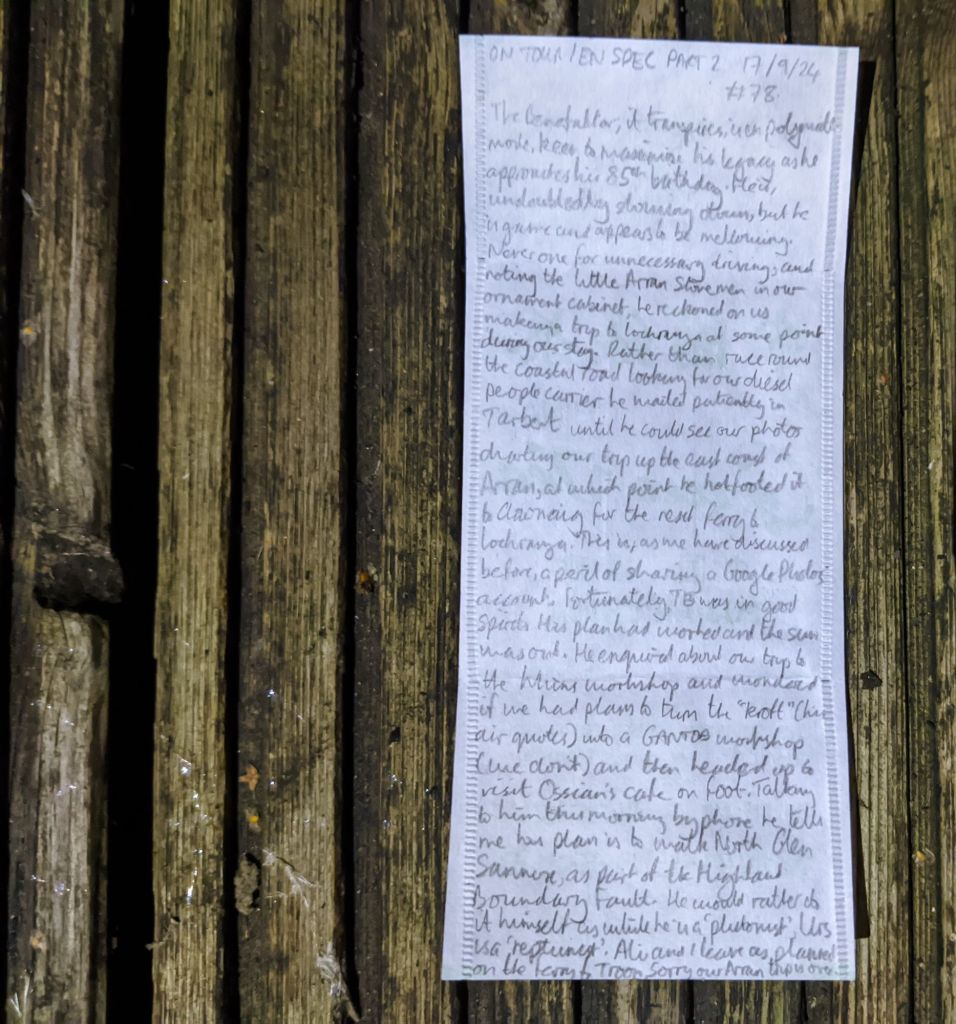 ON TOUR / EN SPEC PART 2 17/9/24
#78.
The Benefaktor, it transpires, is in polymath
mode, keen to maximise his legacy as he
approaches his 85th birthday. He is,
undoubtedly slowing down, but he
is game and appears to be mellowing.
Never one for unnecessary driving, and
noting the little Arran Stone men in our
ornament cabinet, he reckoned on us
making a trip to Lochranza at some point
during our stay. Rather than race round
the coastal road looking for our diesel
people carrier he waited patiently in
Tarbert until he could see our photos
charting our trip up the east coast of
Arran, at which point he hotfooted it
to Claonaig for the next ferry to
Lochranza. This is, as we have discussed
before, a peril of sharing a Google Photos
account. Fortunately, TB was in good
spirits. His plan had worked and the sun
was out. He enquired about our trip to
the workshop and wondered
if we had plans to turn the "kroft" (his
air quotes) into a workshop
(we don't) and then headed up to
visit Ossian's cave on foot. Talking
to him this morning by phone he tells
me his plan is to walk North Glen
Sannox, as part of the Highland
Boundary Fault. He would rather do
it himself as while he is a 'plutonist', Urs
is a 'neptunist'. Ali and I leave as planned
on the ferry to Troon. Sorry our Arran trip is over